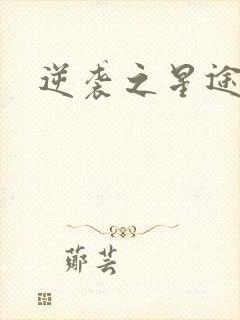 逆袭之星途
鄭芸